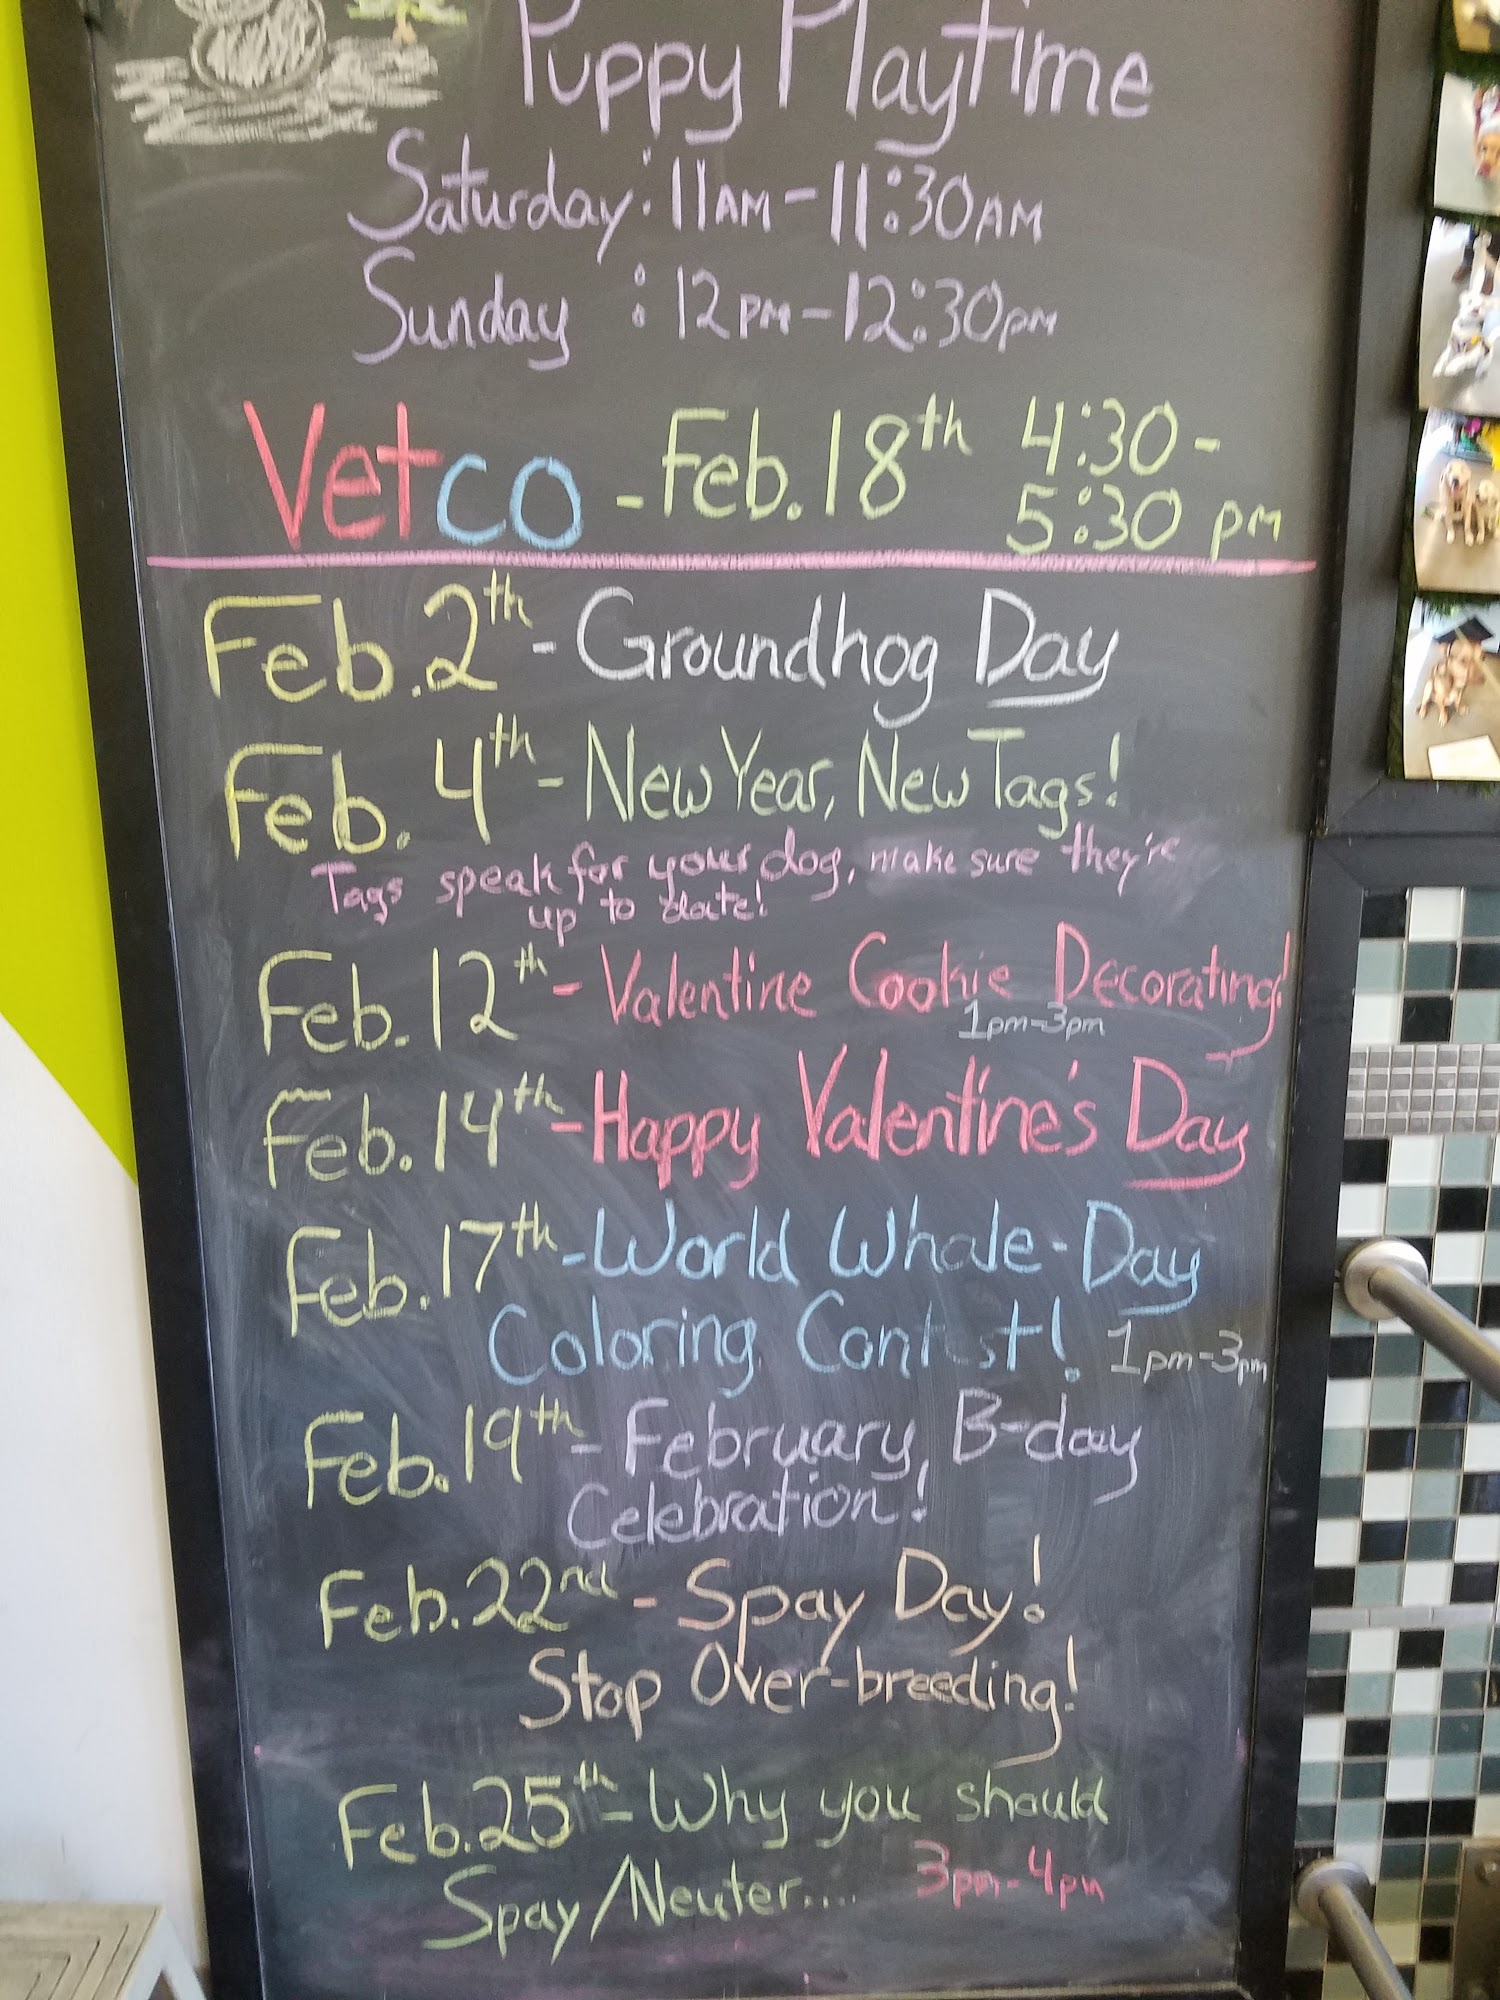 Puppy Playtime
Saturday: 11AM-11:30AM
Sunday : 12PM-12:30PM
Vetco - Feb. 18th 4:30 -
5:30 pm
Feb. 2th - Groundhog Day
Feb. 4th - New Year, New Tags!
Tags speak for your dog, make sure they're
up to date!
Feb. 12th - Valentine Cookie Decorating!
1pm-3pm
Feb. 14th - Happy Valentine's Day
Feb. 17th - World Whale-Day
Coloring Contest! 1pm-3pm
Feb. 19th - February B-day
Celebration!
Feb. 22nd - Spay Day!
Stop Over-breeding!
Feb. 25th - Why you should
Spay/Neuter.... 3pm-4pm